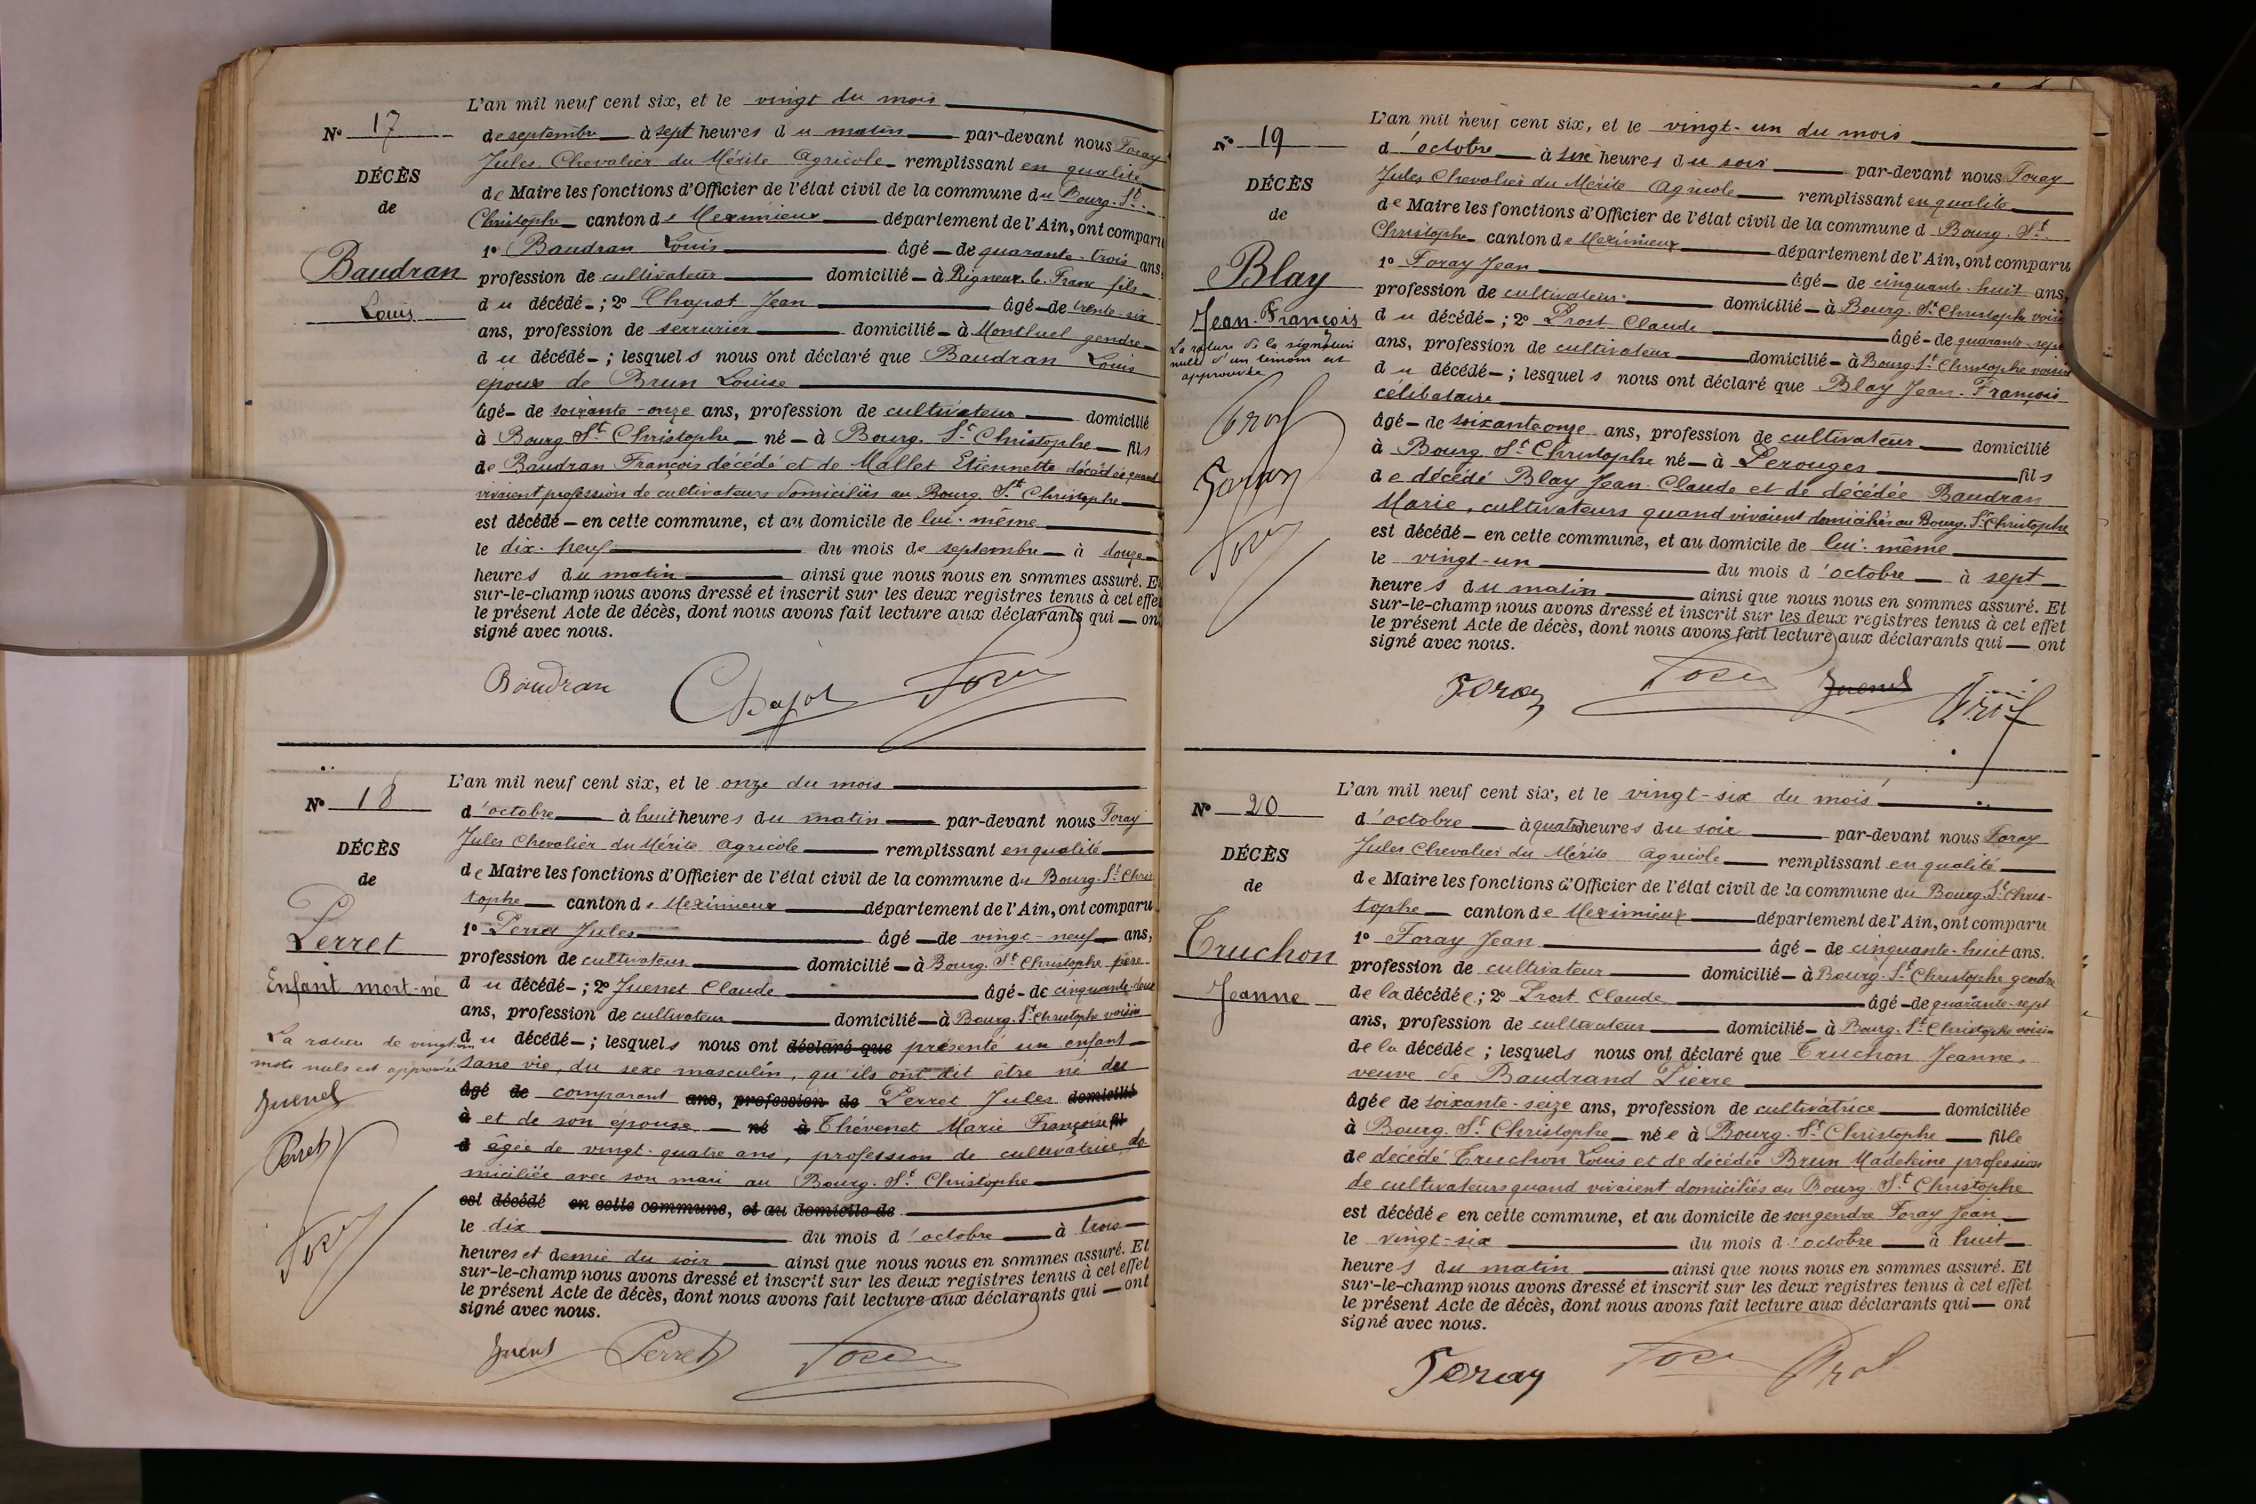 N° 17
DÉCÈS
de
Baudran
Louis
L'an mil neuf cent six, et le vingt du mois
de septembre à sept heures du matin par-devant nous Foray
Jules Chevalier du Mérite Agricole remplissant en qualité
de Maire les fonctions d'Officier de l'état civil de la commune du Bourg-St-
Christophe canton de Meximieux département de l'Ain, ont comparu
1° Baudran Louis âgé de quarante-trois ans,
profession de cultivateur domicilié à Rigneux-le-Franc fils
du décédé ; 2° Chapot Jean âgé de trente-six
ans, profession de serrurier domicilié à Montluel gendre
du décédé ; lesquels nous ont déclaré que Baudran Louis
époux de Brun Louise
âgé de soixante-onze ans, profession de cultivateur domicilié
à Bourg St Christophe né à Bourg-St Christophe fils
de Baudran François décédé et de Mallet Etiennette décédée quand
vivaient profession de cultivateurs domiciliés au Bourg-St Christophe
est décédé en cette commune, et au domicile de lui-même
le dix-neuf du mois de septembre à douze
heures du matin ainsi que nous nous en sommes assuré. Et
sur-le-champ nous avons dressé et inscrit sur les deux registres tenus à cet effet
le présent Acte de décès, dont nous avons fait lecture aux déclarants qui ont
signé avec nous.
Baudran Chapot Foray
N° 18
DÉCÈS
de
Perret
Enfant mort-né
La rature de vingt-un
mots nuls est approuvée
Juenet
Perret
Foray
L'an mil neuf cent six, et le onze du mois
d'octobre à huit heures du matin par-devant nous Foray
Jules Chevalier du Mérite Agricole remplissant en qualité
de Maire les fonctions d'Officier de l'état civil de la commune du Bourg-St Chris
tophe canton de Meximieux département de l'Ain, ont comparu
1° Perret Jules âgé de vingt-neuf ans,
profession de cultivateur domicilié à Bourg-St Christophe père
du décédé ; 2° Juenet Claude âgé de cinquante-deux
ans, profession de cultivateur domicilié à Bourg-St Christophe voisin
du décédé ; lesquels nous ont déclaré que présenté un enfant
sans vie, du sexe masculin, qu'ils ont dit être né du
âgé de comparant ans, profession de Perret Jules domicilié
à et de son épouse né à Thévenet Marie Françoise fil
d âgée de vingt-quatre ans, profession de cultivatrice, do
miciliée avec son mari au Bourg-St Christophe
est décédé en cette commune, et au domicile de
le dix du mois d'octobre à trois
heures et demie du soir ainsi que nous nous en sommes assuré. Et
sur-le-champ nous avons dressé et inscrit sur les deux registres tenus à cet effet
le présent Acte de décès, dont nous avons fait lecture aux déclarants qui ont
signé avec nous.
Juenet Perret Foray
N° 19
DÉCÈS
de
Blay
Jean-François
La rature de la signature
nulle d'un témoin est
approuvée
Prost
Foray
Foray
L'an mil neuf cent six, et le vingt-un du mois
d'octobre à six heures du soir par-devant nous Foray
Jules Chevalier du Mérite Agricole remplissant en qualité
de Maire les fonctions d'Officier de l'état civil de la commune d Bourg-St-
Christophe canton de Meximieux département de l'Ain, ont comparu
1° Foray Jean âgé de cinquante-huit ans,
profession de cultivateur domicilié à Bourg-St Christophe voisin
du décédé ; 2° Prost Claude âgé de quarante-sept
ans, profession de cultivateur domicilié à Bourg-St Christophe voisin
du décédé ; lesquels nous ont déclaré que Blay Jean-François
célibataire
âgé de soixante onze ans, profession de cultivateur domicilié
à Bourg-St Christophe né à Perouges fils
de décédé Blay Jean-Claude et de décédée Baudran
Marie, cultivateurs quand vivaient domiciliés au Bourg-St-Christophe
est décédé en cette commune, et au domicile de lui-même
le vingt-un du mois d'octobre à sept
heures du matin ainsi que nous nous en sommes assuré. Et
sur-le-champ nous avons dressé et inscrit sur les deux registres tenus à cet effet
le présent Acte de décès, dont nous avons fait lecture aux déclarants qui ont
signé avec nous.
Foray Foray Juenet Prost
N° 20
DÉCÈS
de
Truchon
Jeanne
L'an mil neuf cent six, et le vingt-six du mois
d'octobre à quatre heures du soir par-devant nous Foray
Jules Chevalier du Mérite Agricole remplissant en qualité
de Maire les fonctions d'Officier de l'état civil de la commune du Bourg-St-Chris-
tophe canton de Meximieux département de l'Ain, ont comparu
1° Foray Jean âgé de cinquante-huit ans.
profession de cultivateur domicilié à Bourg-St-Christophe gendre
de la décédée ; 2° Prost Claude âgé de quarante-sept
ans, profession de cultivateur domicilié à Bourg-St-Christophe voisin
de la décédée ; lesquels nous ont déclaré que Truchon Jeanne,
veuve de Baudrand Pierre
âgée de soixante-seize ans, profession de cultivatrice domiciliée
à Bourg-St Christophe née à Bourg-St Christophe fille
de décédé Truchon Louis et de décédée Brun Madeleine profession
de cultivateurs quand vivaient domiciliés au Bourg-St Christophe
est décédée en cette commune, et au domicile de son gendre Foray Jean
le vingt-six du mois d'octobre à huit
heures du matin ainsi que nous nous en sommes assuré. Et
sur-le-champ nous avons dressé et inscrit sur les deux registres tenus à cet effet
le présent Acte de décès, dont nous avons fait lecture aux déclarants qui ont
signé avec nous.
Foray Foray Prost